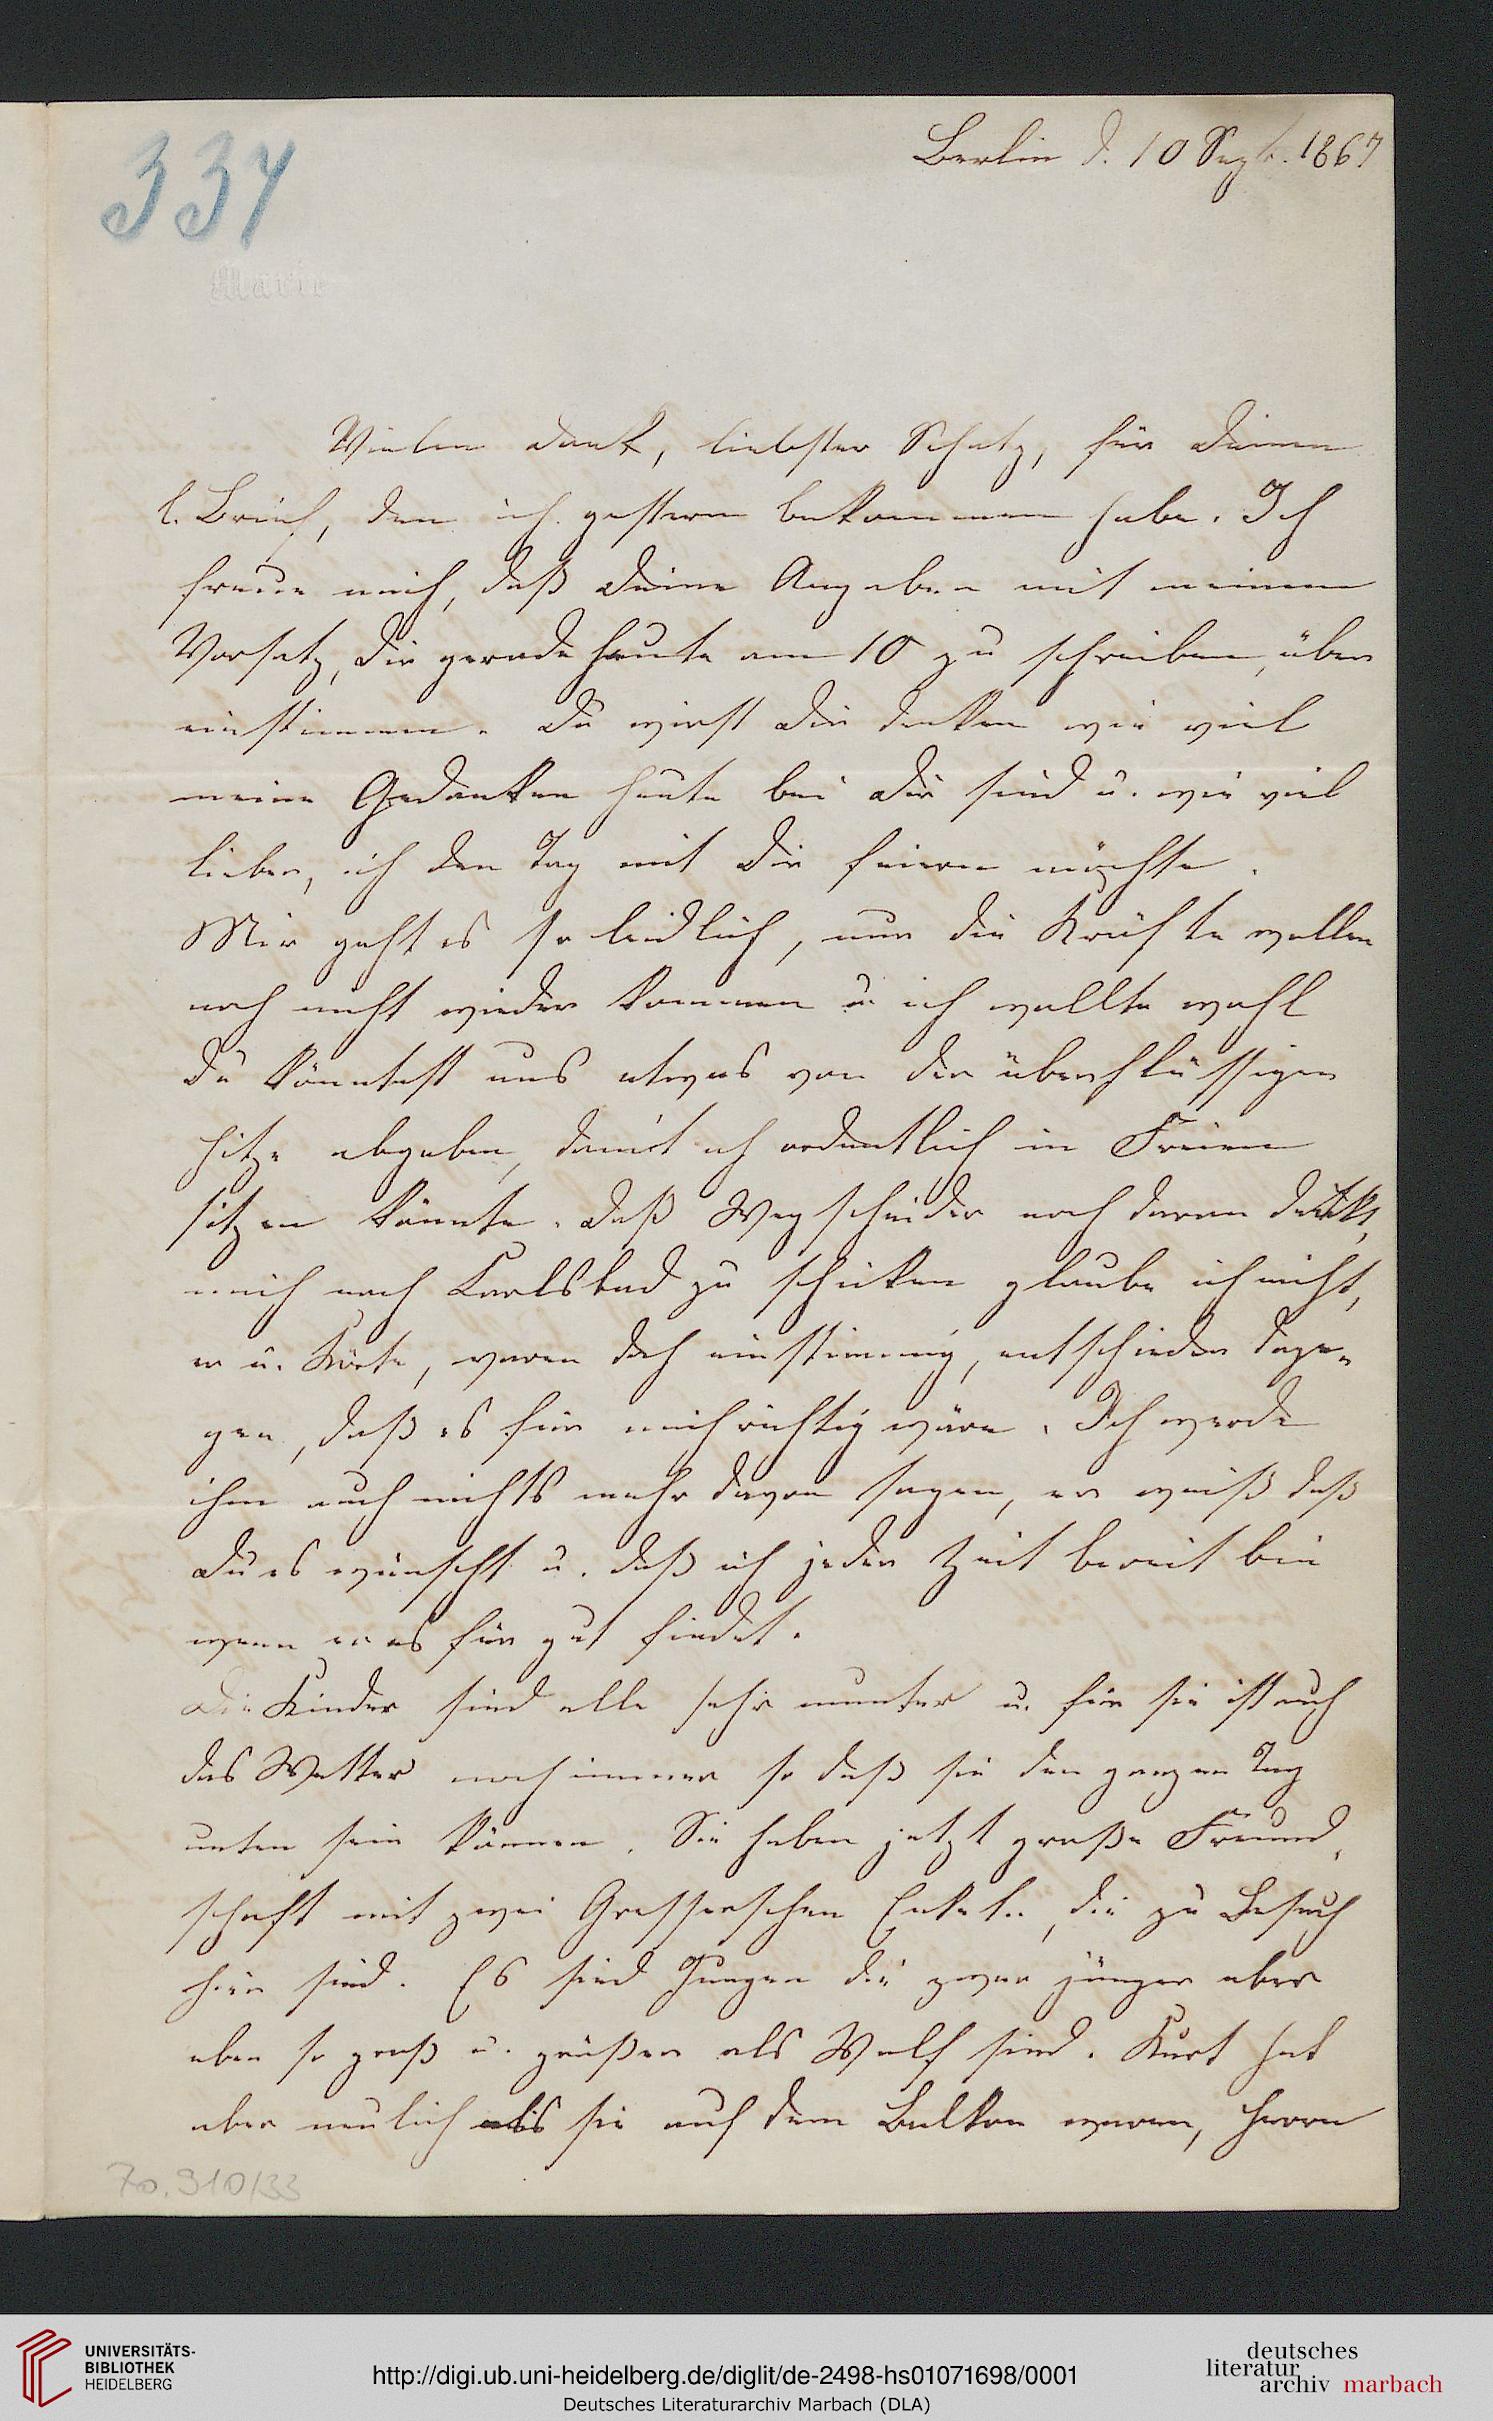 334
Berlin d. 10 Sept. 1867
Marie
Vielen Dank, liebster Schatz, für Deinen
l. Brief, den ich gestern bekommen habe. Ich
freue mich, daß Deine Angaben mit meinem
Vorsatz, Dir gerade heute am 10 zu schreiben, über
einstimmen. Du wirst Dir denken wie viel
meine Gedanken heute bei Dir sind u. wie viel
lieber, ich den Tag mit Dir feiern möchte.
Mir geht es so leidlich, nur die Kräfte wollen
noch nicht wieder kommen u. ich wollte wohl
Du könntest uns etwas von der überflüssigen
Hitze abgeben, damit ich ordentlich im Freien
sitzen könnte. Daß Wegscheider noch daran denkt,
mich nach Karlsbad zu schicken glaube ich nicht,
er u. Körte, waren doch einstimmig, entschieden dage-
gen, daß es für mich richtig wäre. Ich werde
ihm auch nichts mehr davon sagen, er weiß daß
Du es wünscht u. daß ich jeder Zeit bereit bin
wenn er es für gut findet.
Die Kinder sind alle sehr munter u. für sie ist auch
das Wetter noch immer so daß sie den ganzen Tag
unten sein können. Sie haben jetzt große Freund-
schaft mit zwei Enkeln, die zu Besuch
hier sind. Es sind Jungen die zwar jünger aber
eben so groß u. größer als Wolf sind. Kurt hat
aber neulich als sie auf dem Balkon waren, Herrn
70.910/33
UNIVERSITÄTS-
BIBLIOTHEK
HEIDELBERG
http://digi.ub.uni-heidelberg.de/diglit/de-2498-hs01071698/0001
Deutsches Literaturarchiv Marbach (DLA)
deutsches
literatur
archiv marbach